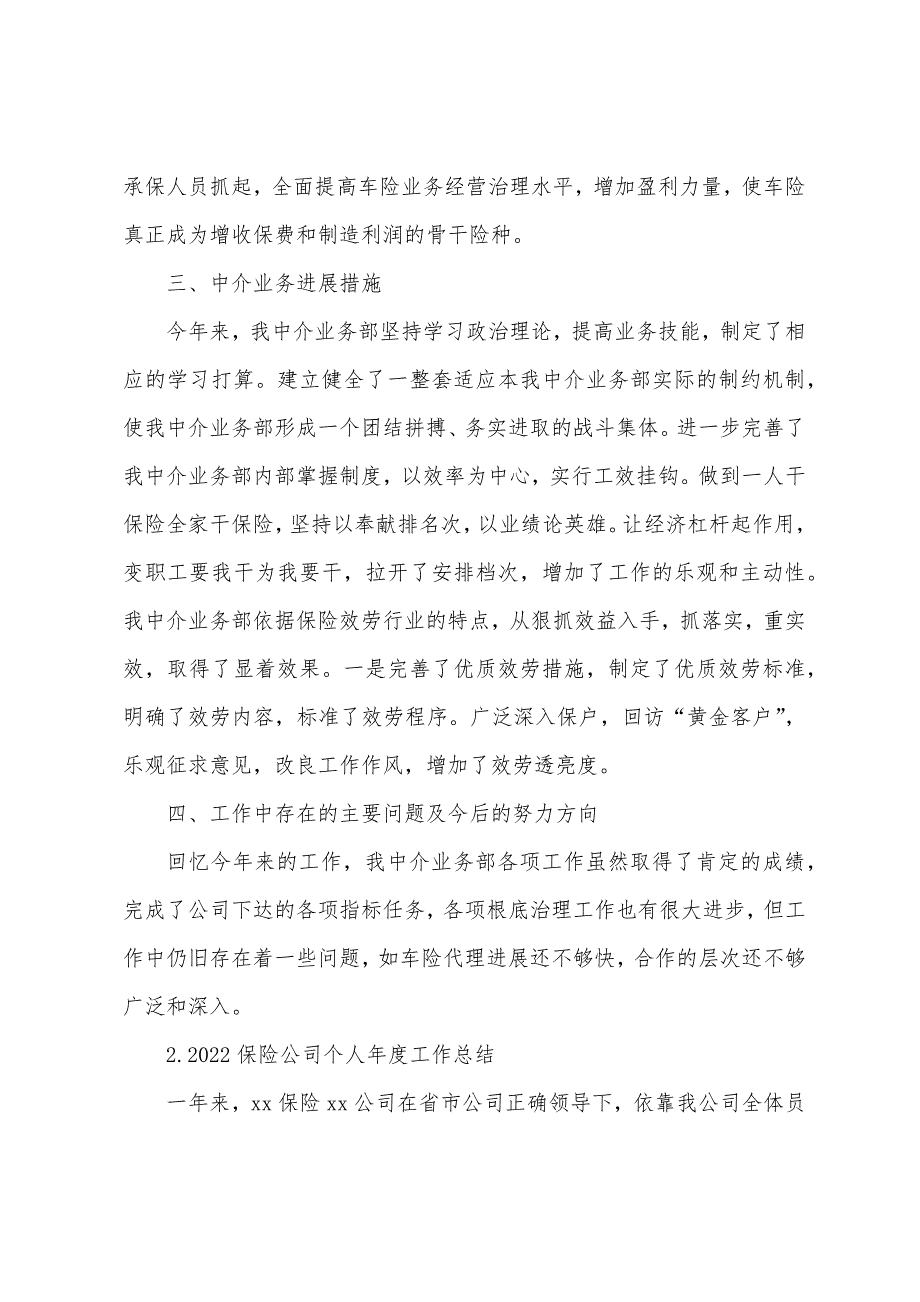 承保人员抓起，全面提高车险业务经营治理水平，增加盈利力量，使车险
真正成为增收保费和制造利润的骨干险种。
三、中介业务进展措施
今年来，我中介业务部坚持学习政治理论，提高业务技能，制定了相
应的学习打算。建立健全了一整套适应本我中介业务部实际的制约机制，
使我中介业务部形成一个团结拼搏、务实进取的战斗集体。进一步完善了
我中介业务部内部掌握制度，以效率为中心，实行工效挂钩。做到一人干
保险全家干保险，坚持以奉献排名次，以业绩论英雄。让经济杠杆起作用，
变职工要我干为我要干，拉开了安排档次，增加了工作的乐观和主动性。
我中介业务部依据保险效劳行业的特点，从狠抓效益入手，抓落实，重实
效，取得了显着效果。一是完善了优质效劳措施，制定了优质效劳标准，
明确了效劳内容，标准了效劳程序。广泛深入保户，回访“黄金客户”，
乐观征求意见，改良工作作风，增加了效劳透亮度。
四、工作中存在的主要问题及今后的努力方向
回忆今年来的工作，我中介业务部各项工作虽然取得了肯定的成绩，
完成了公司下达的各项指标任务，各项根底治理工作也有很大进步，但工
作中仍旧存在着一些问题，如车险代理进展还不够快，合作的层次还不够
广泛和深入。
2.2022 保险公司个人年度工作总结
一年来，xx 保险 xx 公司在省市公司正确领导下，依靠我公司全体员